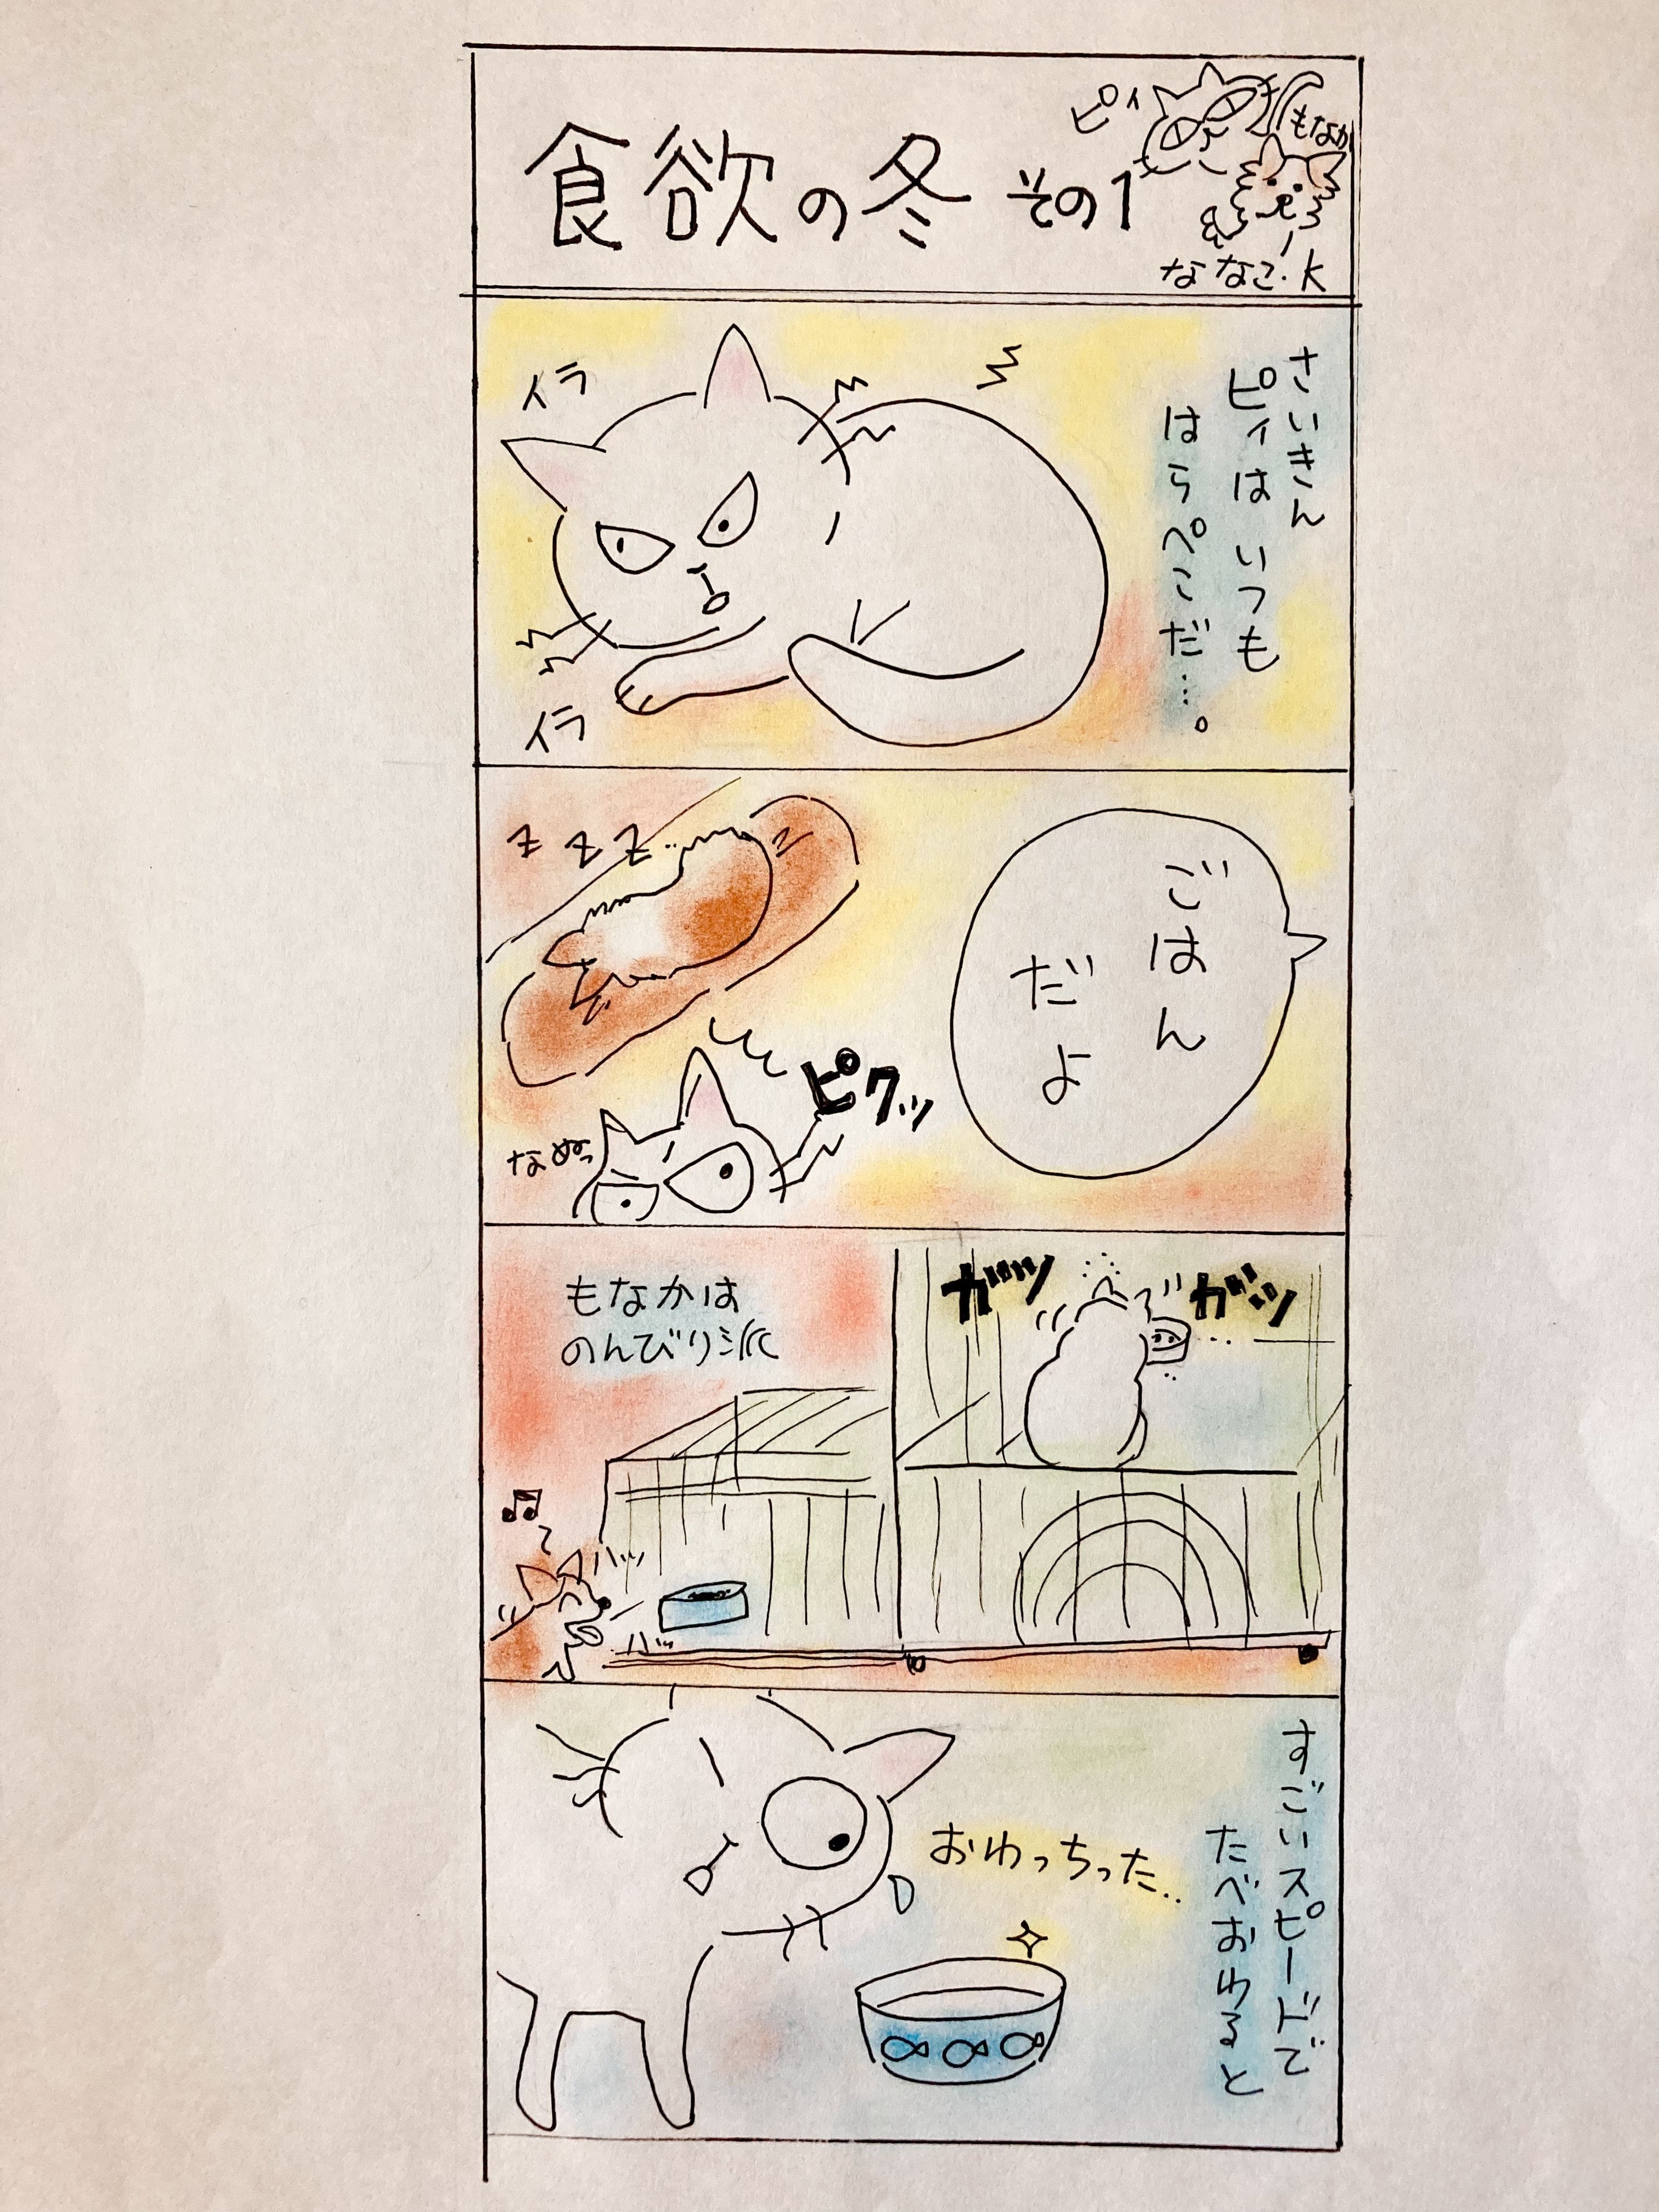 食欲の冬 その1
ピィ
もなか
ななこ.K
さいきん
ピィは いつも
はらぺこだ…。
イラ
イラ
ごはん
だよ
z z z…
ピクッ
なぬっ
ガツ
ガツ
もなかは
のんびり派
♫
ハッ
ハッ
すごいスピードで
たべおわると
おわっちった..